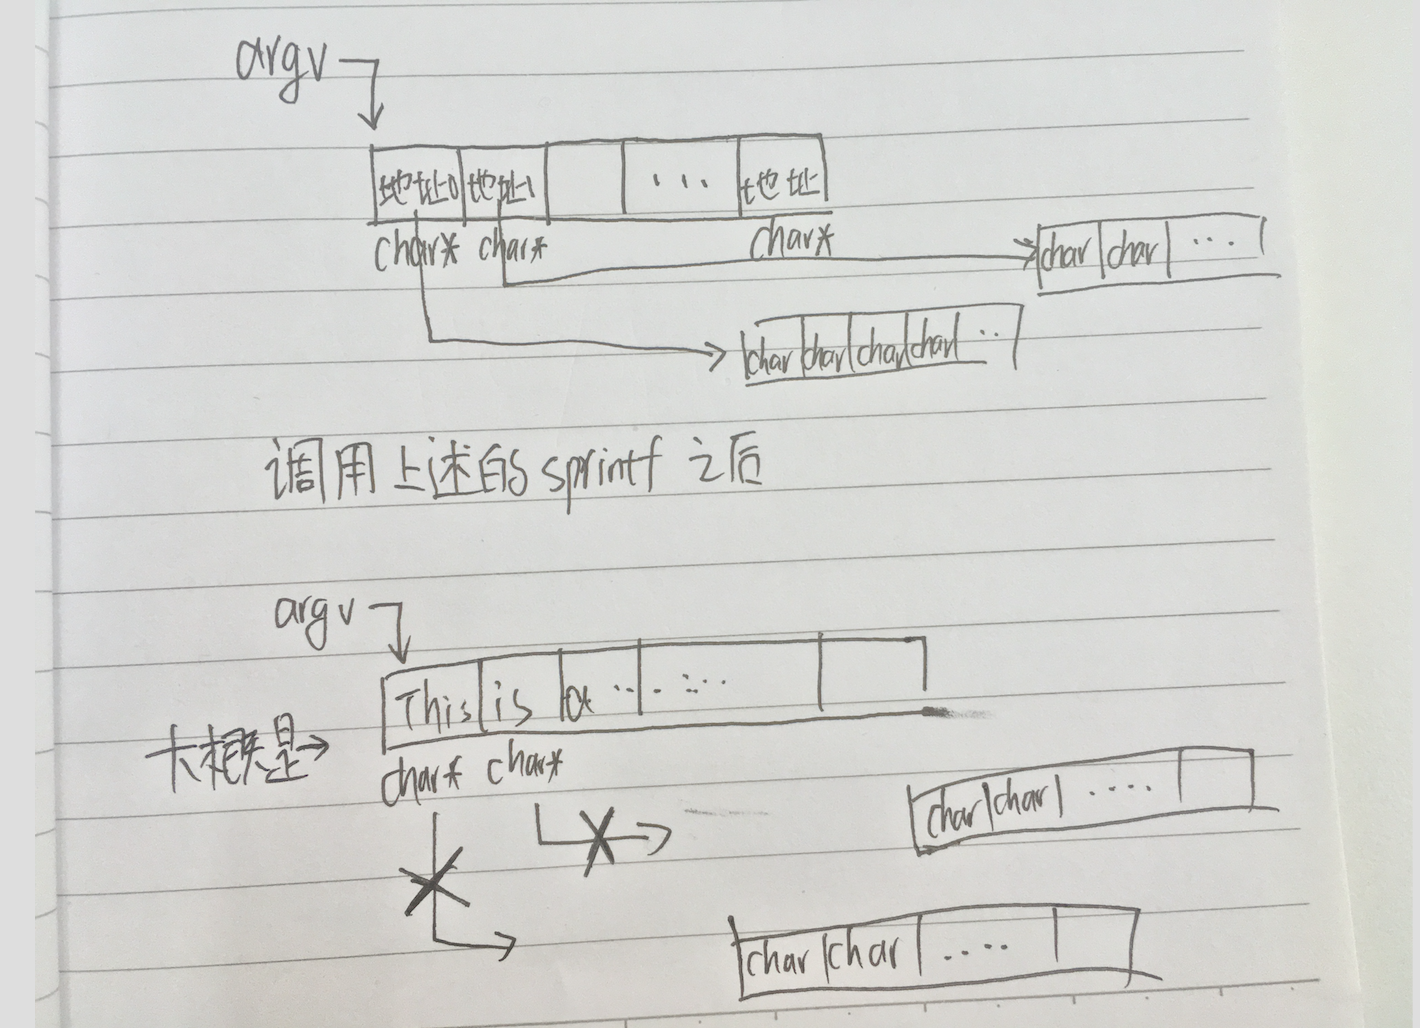 argv
地址0 地址1 ... 地址
char* char* char*
char char ...
char char char char ..
调用上述的sprintf 之后
argv
This is a ... ....
大概是→
char* char*
char char ....
char char ....